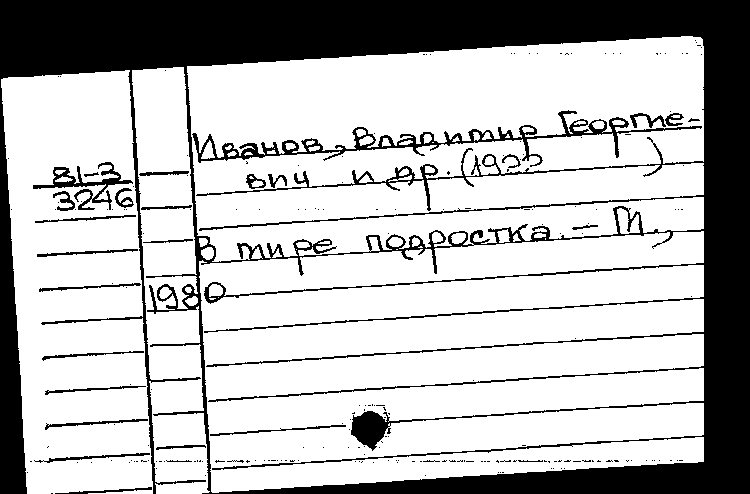 Иванов, Владимир Георгие-
81-3
вич и др. (1922 )
3246
В мире подростка. – М.,
1980